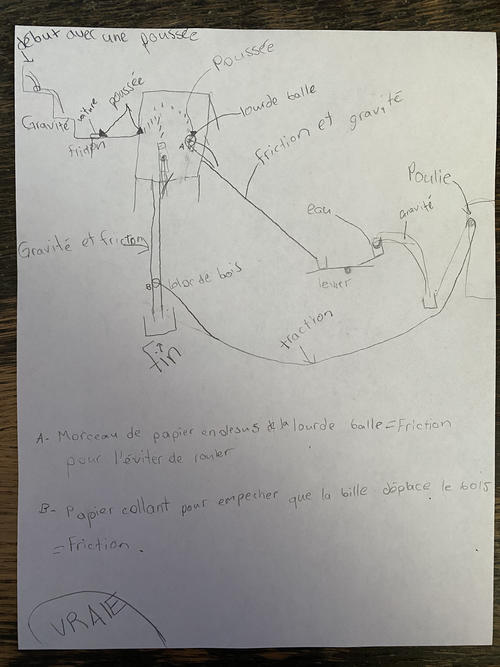 début avec une poussée
Poussée
poussée
lourde balle
Gravité
friction
friction et gravité
A
Poulie
eau
gravité
Gravité et friction
levier
B
bloc de bois
traction
Fin
A- Morceau de papier en desus de la lourde balle = Friction
pour l'éviter de rouler
B- Papier collant pour empecher que la bille déplace le bois
= Friction.
VRAIE